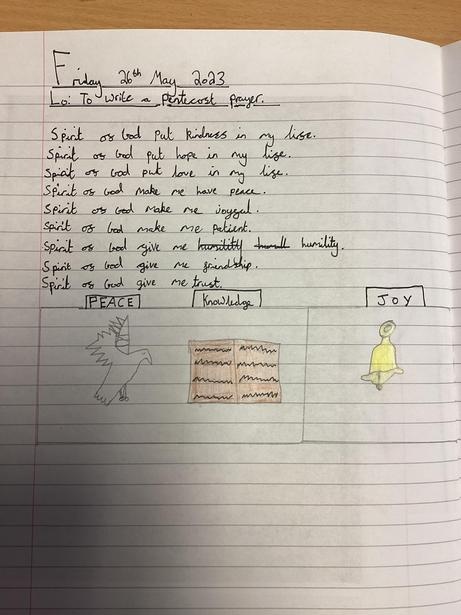 Friday 26th May 2023
Lo: To write a Pentecost prayer.
Spirit of God put kindness in my life.
Spirit of God put hope in my life.
Spirit of God put love in my life.
Spirit of God make me have peace.
Spirit of God make me joyful.
Spirit of God make me patient.
Spirit of God give me humility humil humility.
Spirit of God give me friendship.
Spirit of God give me trust.
PEACE Knowledge JOY